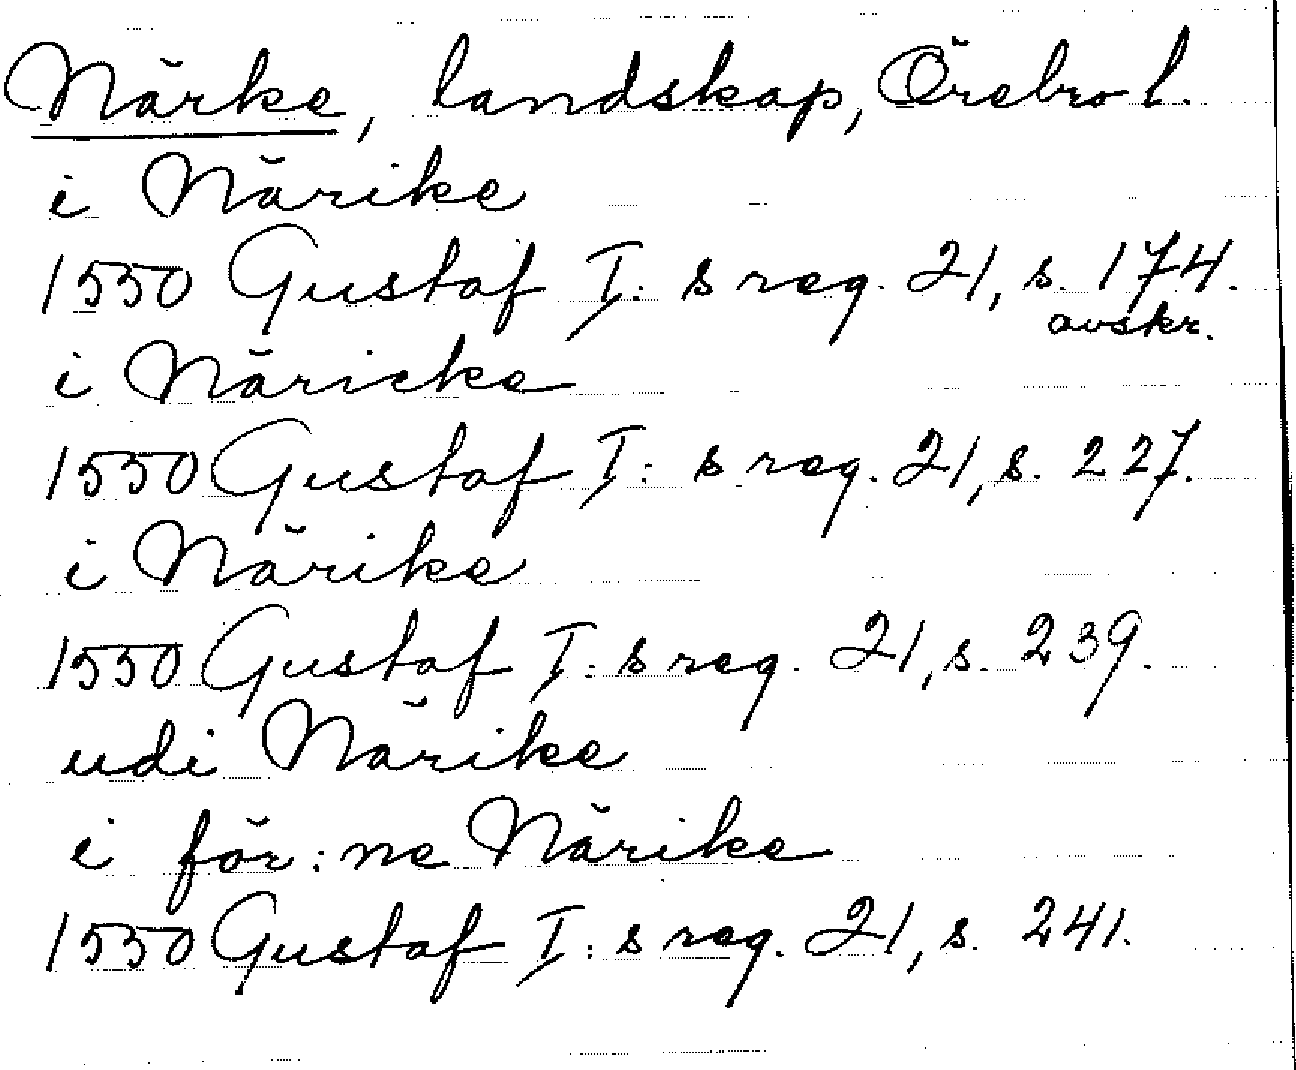 Närke, landskap, Örebro l.
i Närike
1550 Gustaf I:s reg. 21, s. 174.
avskr.
i Näricke
1550 Gustaf I:s reg. 21, s. 227.
i Närike
1550 Gustaf I:s reg. 21, s. 239.
udi Närike
i för:ne Närike
1550 Gustaf I:s reg. 21, s. 241.